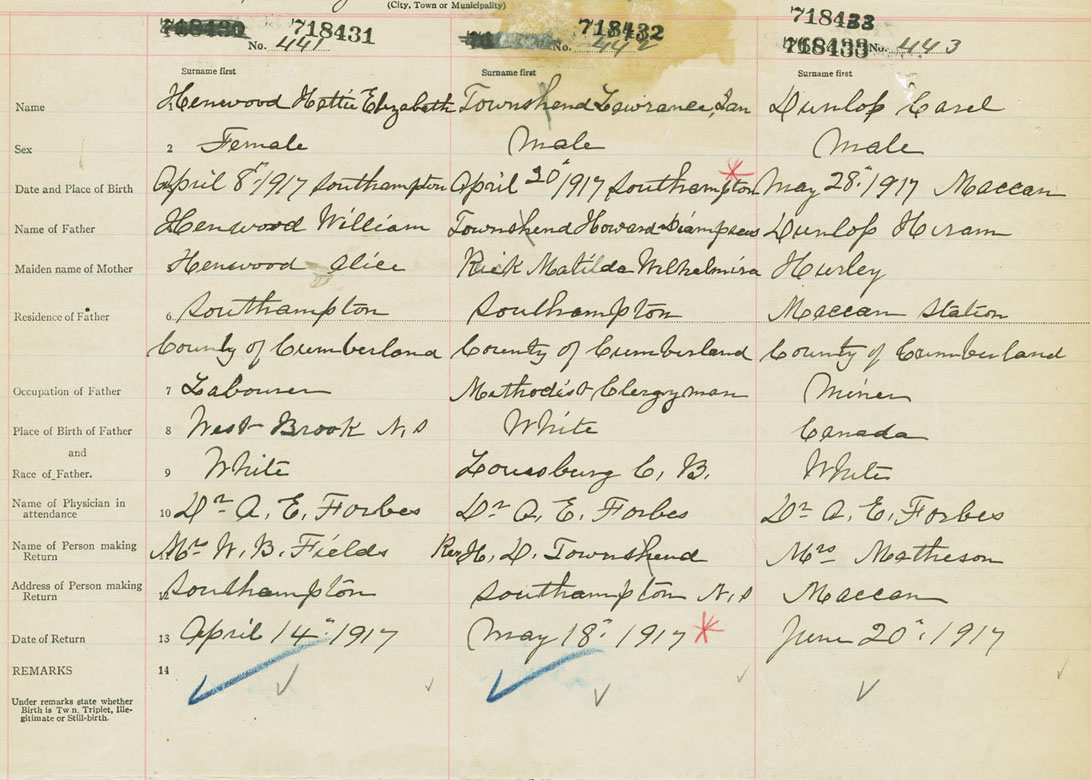 (City, Town or Municipality)
718430 718431 718432 718433
No. 441 No. 442 718433 No. 443
Surname first Surname first Surname first
Name 1 Henwood Hattie Elizabeth Townshend Lawrance, Ian Dunlop Carel
Sex 2 Female Male Male
Date and Place of Birth April 8" 1917 Southampton April 20" 1917 Southampton May 28". 1917 Maccan
Name of Father Henwood William Townshend Howard Dunlop Hiram
Maiden name of Mother Henwood Alice Rick Matilda Wilhelmina Hurley
Residence of Father 6 Southampton Southampton Maccan Station
County of Cumberland County of Cumberland County of Cumberland
Occupation of Father 7 Labourer Methodist Clergyman Miner
Place of Birth of Father 8 West Brook N.S White Canada
and
Race of Father. 9 White Louisburg C. B. White
Name of Physician in
attendance 10 Dr A. E. Forbes Dr A. E. Forbes Dr A. E. Forbes
Name of Person making
Return 11 Mrs W. B. Fields Rev H. D. Townshend Mrs Matheson
Address of Person making
Return 12 Southampton Southampton N.S Maccan
Date of Return 13 April 14". 1917 May 18". 1917 June 20". 1917
REMARKS 14
Under remarks state whether
Birth is Tw n, Triplet, Ille-
gitimate or Still-birth.